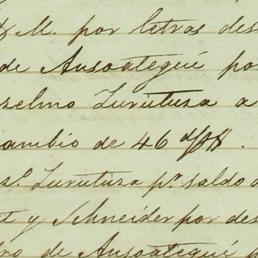 M. por letras des
de Ansoategui por
selmo Zurutuza a
cambio de 46 d/48.
Zurutuza pr. saldo d
t y Schneider por des
ro de Ansoategui p